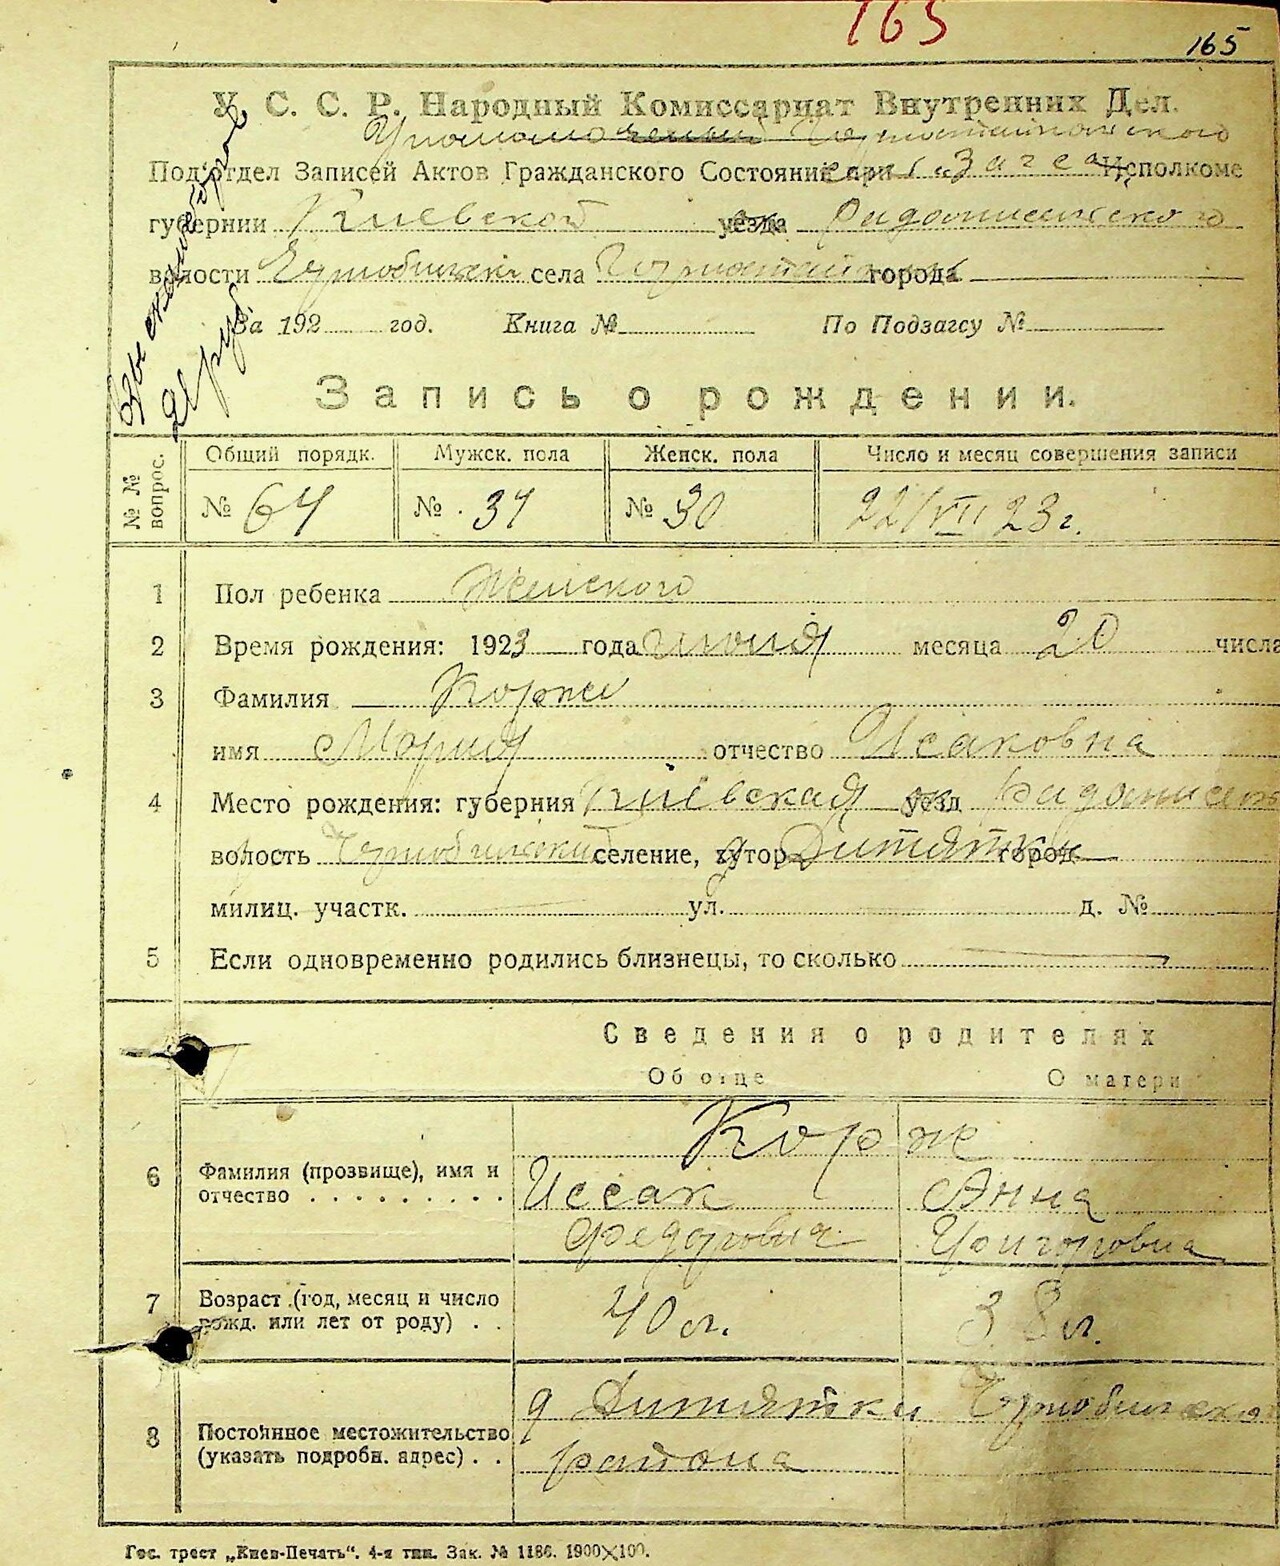 165
165
У. С. С. Р. Народный Комиссариат Внутренних Дел.
Под'отдел Записей Актов Гражданского Состояния при "Загса" Исполкоме
губернии Киевской уезда
волости села города
За 192 год. Книга № По Подзагсу №
Запись о рождении.
№ № вопрос. Общий порядк. Мужск. пола Женск. пола Число и месяц совершения записи
№ 64 № 34 № 30 22/VII 23 г.
1 Пол ребенка Женского
2 Время рождения: 1923 года июня месяца 20 числа
3 Фамилия Корж
имя Мария отчество Исаковна
4 Место рождения: губерния Киевская уезд
волость селение, хутор д Дитятки город
милиц. участк. ул. д. №
5 Если одновременно родились близнецы, то сколько
Сведения о родителях
Об отце О матери
Корж
6 Фамилия (прозвище), имя и отчество Иссак Анна
Федорович Григоровна
7 Возраст (год, месяц и число рожд. или лет от роду) 40 л. 38 л.
8 Постоянное местожительство (указать подробн. адрес) д Дитятки
района
Гос. трест „Киев-Печать“. 4-я тип. Зак. № 1186. 1900×100.